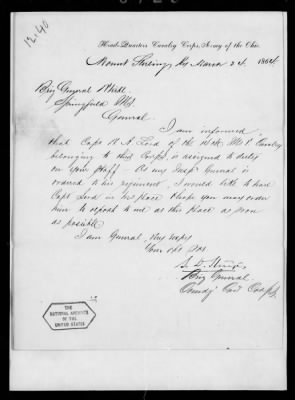 12,140
Head-Quarters Cavalry Corps, Army of the Ohio
Mount Sterling Ky March 24 1864
Brig General
Springfield Mo.
General
I am informed
that Capt R. N. Lord of the Mo. V. Cavalry
belonging to this Corps is assigned to duty
on your Staff. As my Insp. General is
ordered to his regiment, I would like to have
Capt Lord in his place I hope you may order
him to report to me at this place as soon
as possible
I am General, Very resp
Your obt svt
S. D. Sturgis
Brig General
Comdg Cav Corps
THE
NATIONAL ARCHIVES
OF THE
UNITED STATES